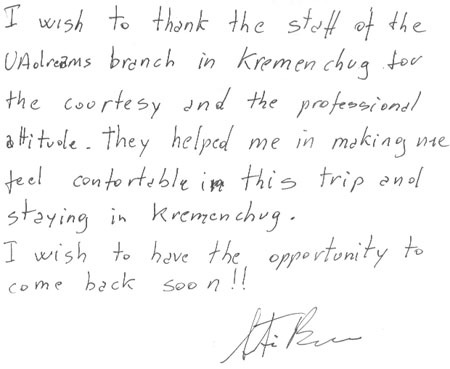 I wish to thank the staff of the
UAdreams branch in Kremenchug for
the courtesy and the professional
attitude. They helped me in making me
feel confortable in this trip and
staying in Kremenchug.
I wish to have the opportunity to
come back soon!!